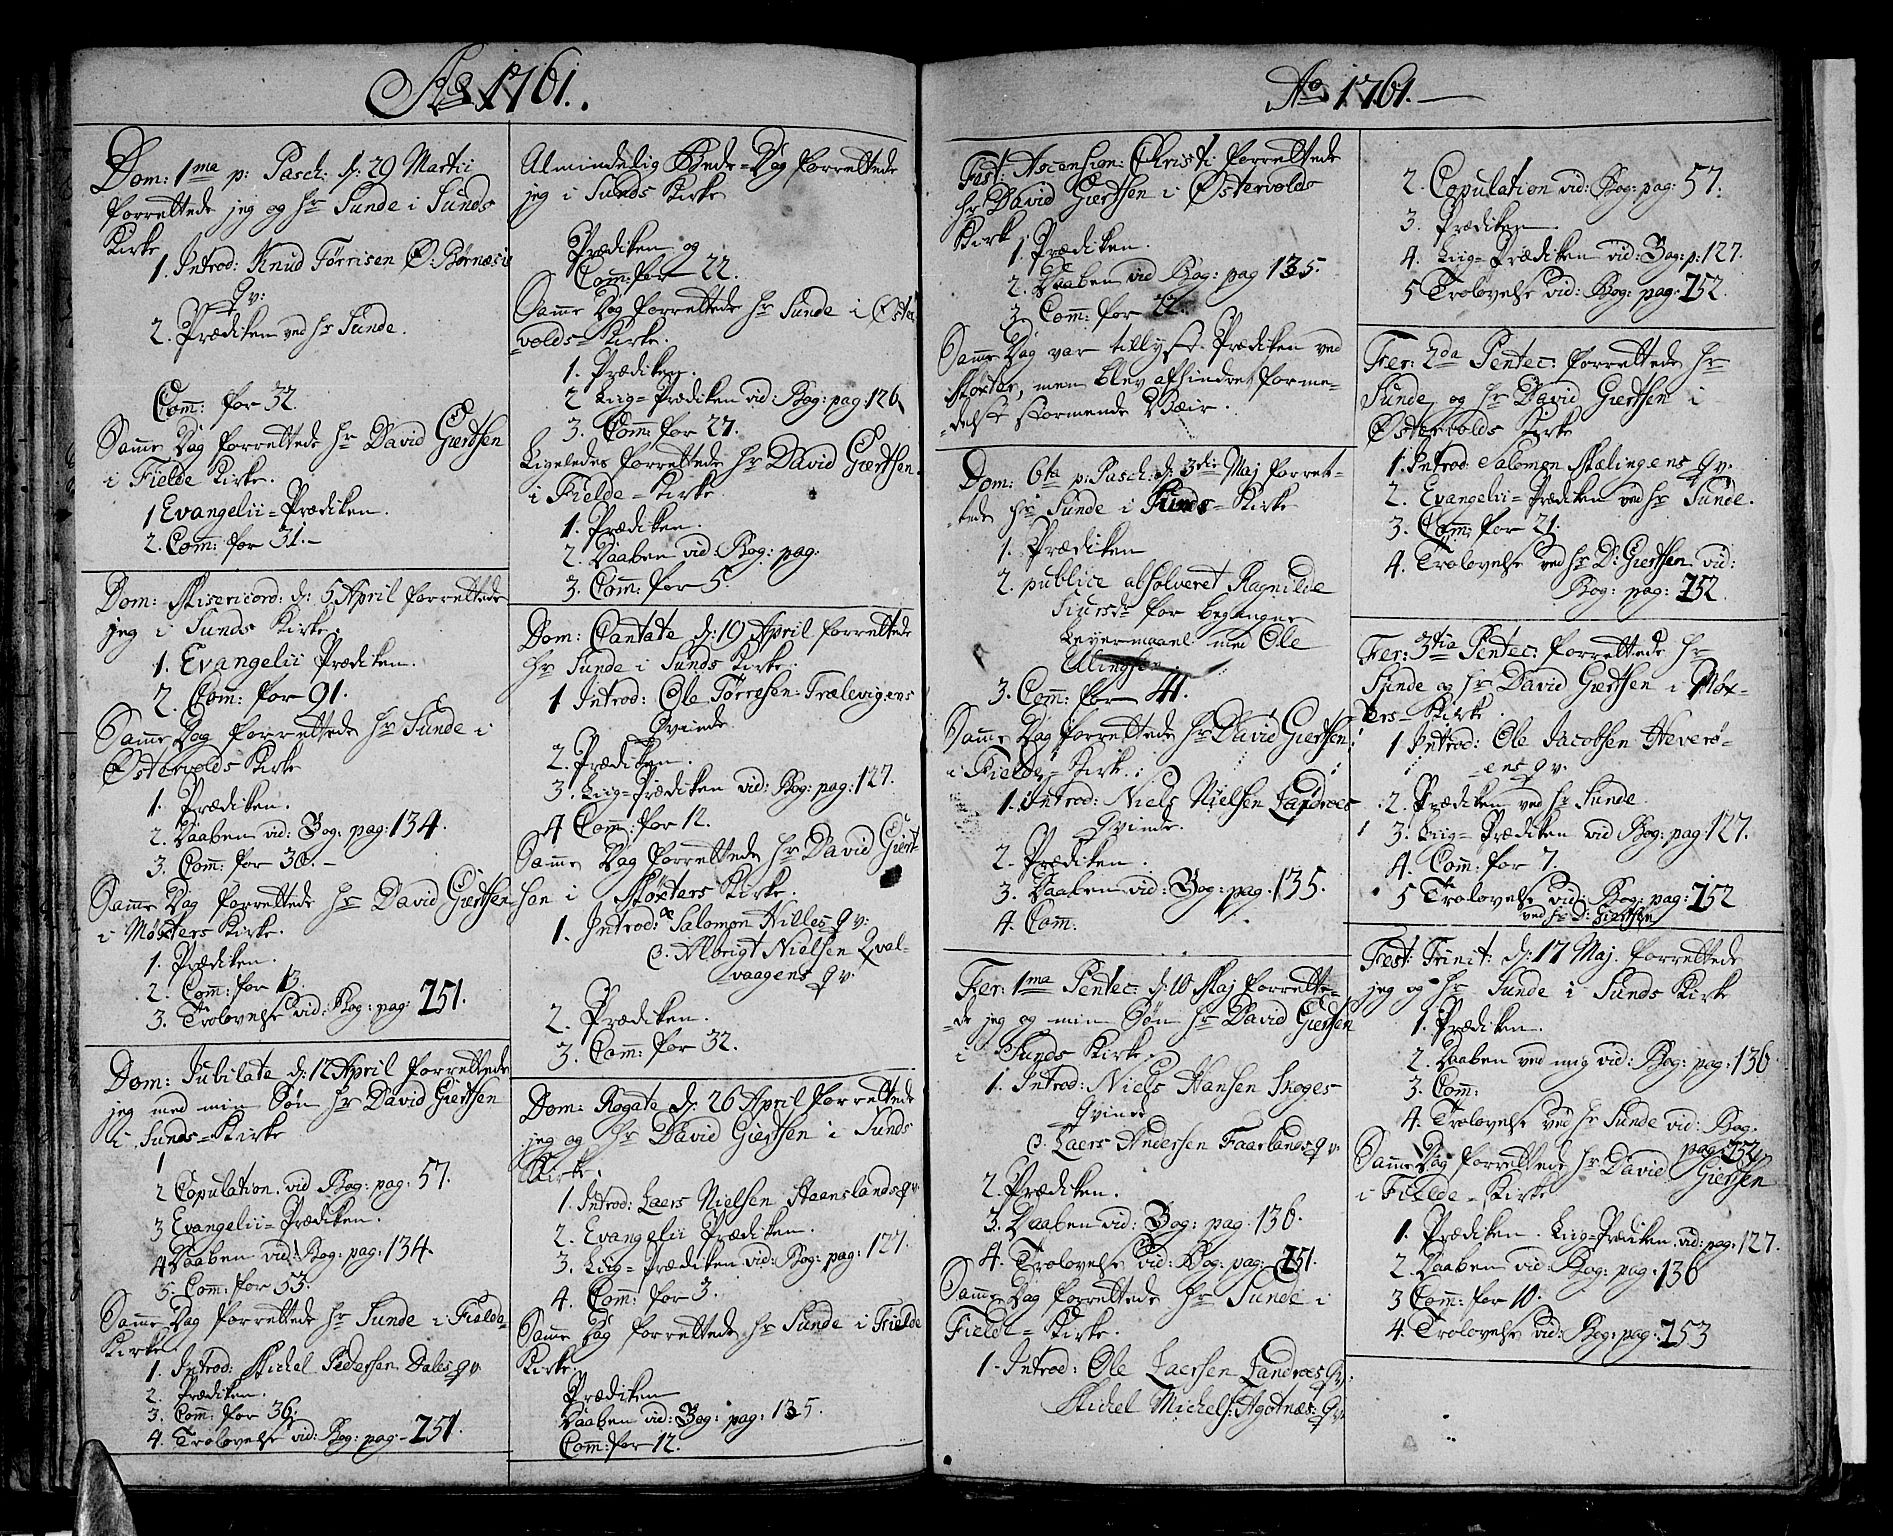 Ao 1761.
Dom: 1ma p: Pasch: d: 29 Martii
forrettede jeg og hr Sunde i Sunds
Kirke
1. Introd: Knud Tørrisen Ø: Børnæsis
qv:
2. Prædiken ved hr Sunde.
Com: for 32.
Samme Dag forrettede hr David Giertsen
i Fielde Kirke.
1 Evangelii=Prædiken.
2. Com: for 31.-
Dom: Misericord: d: 5 April forrettede
jeg i Sunds Kirke.
1. Evangelii Prædiken.
2. Com: for 91.
Samme Dag forrettede hr Sunde i
Østervolds Kirke
1. Prædiken.
2. Daaben vid: Bog: pag: 134.
3. Com: for 30.-
Samme Dag forrettede hr David Giertsen
i Møxters Kirke.
1. Prædiken.
2. Com: for 13.
3. Trolovelse vid: Bog: pag: 251.
Dom: Jubilate d: 12 April forrettede
jeg med min Søn hr David Giertsen
i Sunds=Kirke
1
2 Copulation. vid Bog: pag: 57.
3 Evangelii=Prædiken.
4 Daaben vid: Bog: pag: 134.
5. Com: for 53.
Samme Dag forrettede hr Sunde i Fielde
Kirke.
1. Introd: Michel Pedersen Dales qv.
2. Prædiken.
3. Com: for 36.
4. Trolovelse vid: Bog: pag- 251.
Almindelig Bede=Dag forrettede
jeg i Sunds Kirke
Prædiken og
Com: for 22.
Samme Dag forrettede hr Sunde i Øster
volds=Kirke.
1. Prædiken.
2 Liig=Prædiken vid: Bog: pag: 126
3. Com: for 27.
Ligeledes forrettede hr David Giertsen
i Fielde=Kirke.
1. Prædiken.
2. Daaben vid: Bog: pag:
3. Com: for 5.
Dom: Cantate d: 19 April forrettede
hr Sunde i Sunds Kirke.
1 Introd: Ole Tørresen Trælevigens
Qvinde
2. Prædiken.
3. Liig=Prædiken vid: Bog: pag: 127.
4 Com: for 12.
Samme Dag forrettede hr David Giert
sen i Møxters Kirke.
1. Introd: Salomon Hilles qv:
Albrigt Nielsen Qval-
vaagens qv.
2. Prædiken.
3. Com: for 32.
Dom: Rogate d: 26 April forrettede
jeg og hr David Giertsen i Sunds
Kirke.
1. Introd: Laers Nielsen Haanslands qv.
2. Evangelii Prædiken.
3. Liig=Prædiken vid: Bog: pag: 127.
4. Com: for 3.
Samme Dag forrettede hr Sunde i Fielde
Kirke.
Prædiken
Daaben vid: Bog: pag: 135.
Com: for 12.
Ao 1761.
Fest: Ascension: Christi forrettede
hr David Giertsen i Østervolds
Kirk
1. Prædiken.
2. Daaben vid Bog: pag 135.
3. Com: for 22.
Samme Dag var tillyst Prædiken ved
Møxter, men blev afhindret forme-
delst stormende Væir.
Dom: 6ta p: Pasch: d: 3die Maj forret-
tede hr Sunde i Sunds=Kirke
1. Prædiken
2. publice absolveret Ragnilde
Siursdr for begangne
Leyermaael med Ole
Ellingsen.
3. Com: for 41.
Samme Dag forrettede hr David Giertsen
i Fielde=Kirke.
1. Introd: Niels Nielsen Landroes
Qvinde.
2. Prædiken.
3. Daaben vid: Bog: pag: 135.
4. Com:
Fer: 1ma Pentec: d: 10 Maj forrette-
de jeg og min Søn hr David Giertsen
i Sunds Kirke.
1. Introd: Niels Hansen Skoges
Qvinde
Laers Andersen Faarlands qv.
2. Prædiken.
3. Daaben vid: Bog: pag: 136.
4. Trolovelse vid: Bog: pag: 251.
Samme Dag forrettede hr Sunde i
Fielde=Kirke.
1. Introd: Ole Laersen Landroes qv.
Michel Michels: Agotnæs: qv.
2. Copulation vid: Bog: pag: 57.
3. Prædiken.
4. Liig=Prædiken vid: Bog: p: 127.
5 Trolovelse vid: Bog: pag: 252.
Fer: 2da Pentec: forrettede hr
Sunde og hr David Giertsen i
Østervolds Kirke
1. Introd: Salomon Kælingens qv.
2. Evangelii=Prædiken ved hr Sunde.
3. Com: for 21.
4. Trolovelse ved hr D: Giertsen vid:
Bog: pag: 252.
Fer: 3tia Pentec: forrettede hr
Sunde og hr David Giertsen i Møx-
ters=Kirke.
1 Introd: Ole Jacobsen Heverø-
ens qv.
2. Prædiken ved hr Sunde.
3. Liig=Prædiken vid Bog: pag: 127.
4. Com: for 7.
5 Trolovelse vid: Bog: pag: 252
ved hr D: Giertsen
Fest: Trinit: d: 17 Maj. forrettede
jeg og hr Sunde i Sunds Kirke
1. Prædiken.
2. Daaben ved mig vid: Bog: pag: 136.
3. Com:
4. Trolovelse ved hr Sunde vid: Bog.
pag: 252
Samme Dag forrettede hr David Giertsen
i Fielde=Kirke
1. Prædiken. Liig=Prædiken. vid: pag: 127.
2. Daaben vid: Bog: pag: 136
3 Com: for 10.
4. Trolovelse vid: Bog: pag: 253